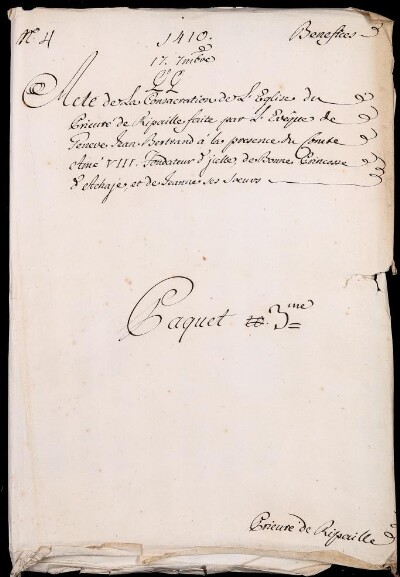 N.º 4 1410. Benefices
17. 7mbre
Acte de La Consacration de L'Eglise du
Prieuré de Ripaille faite par L'Evêque de
Geneve Jean Bertrand à la presence du Comte
Amé VIII. Fondateur d'jcelle, de Bonne Princesse
d'Achaje, et de Jeanne ses soeurs
Paquet 3me
Prieuré de Ripaille